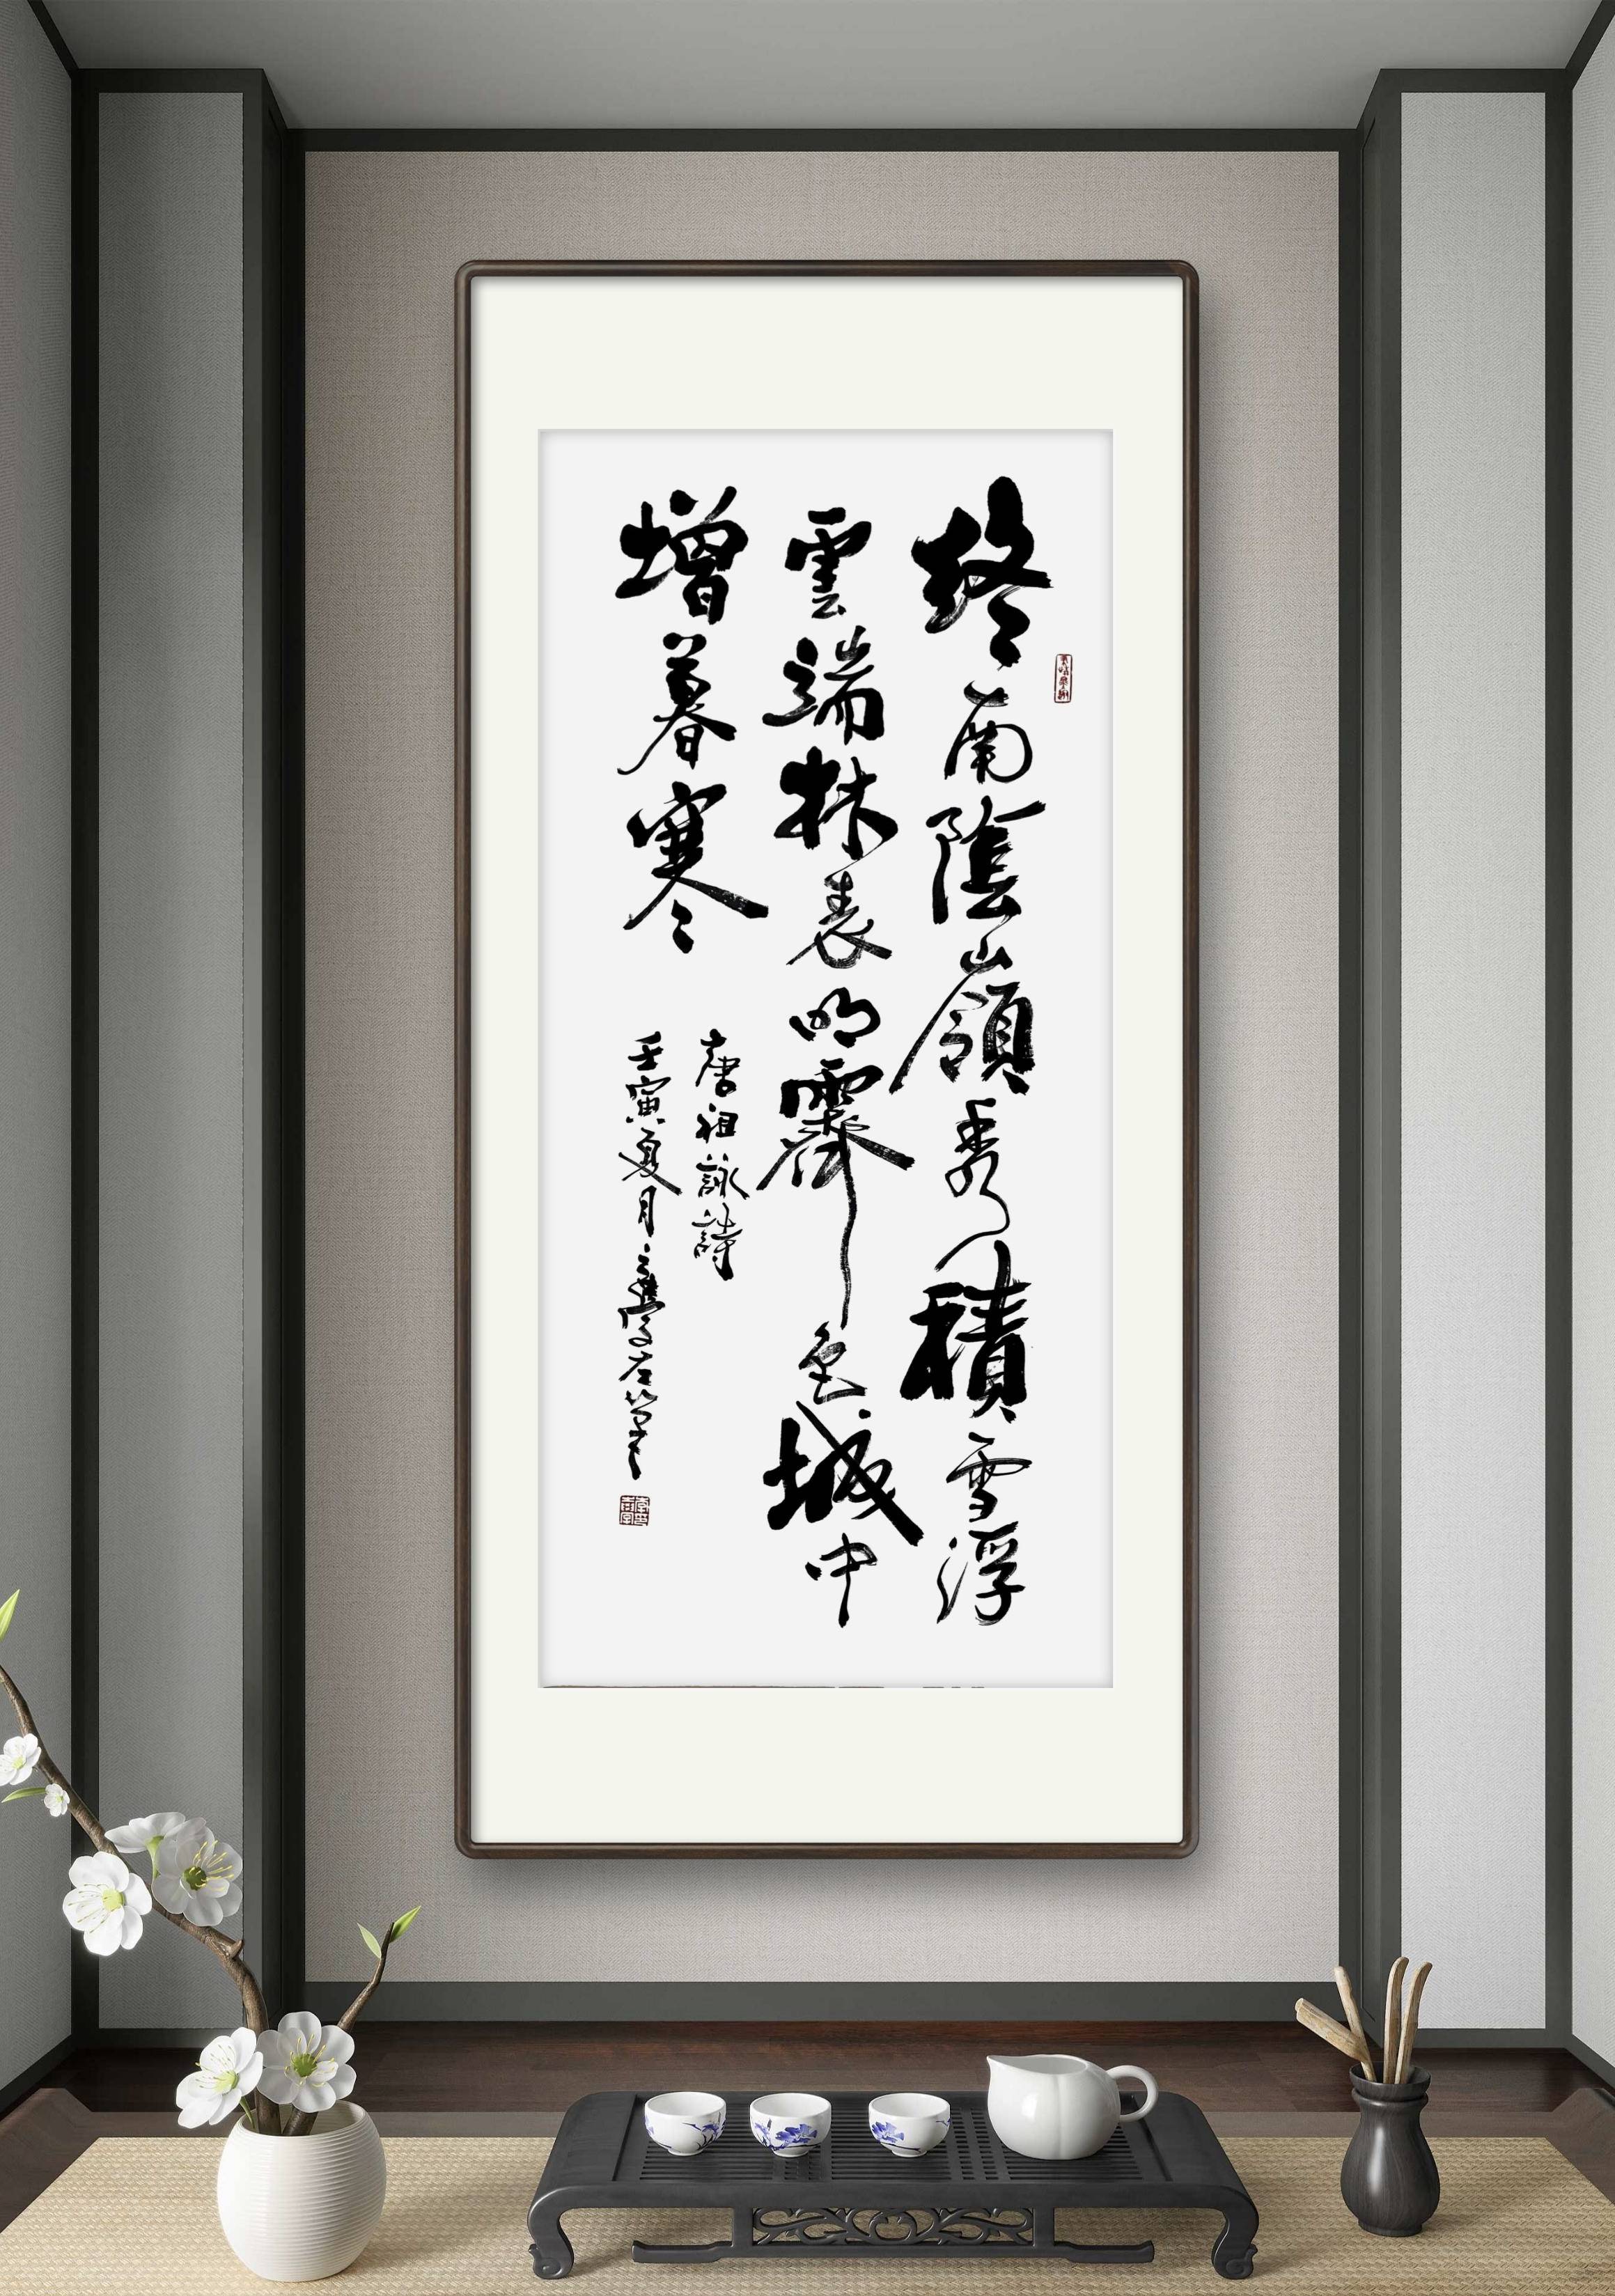 終南陰嶺秀積雪浮
雲端林表明霽色城中
增暮寒
唐祖詠詩
壬寅夏月